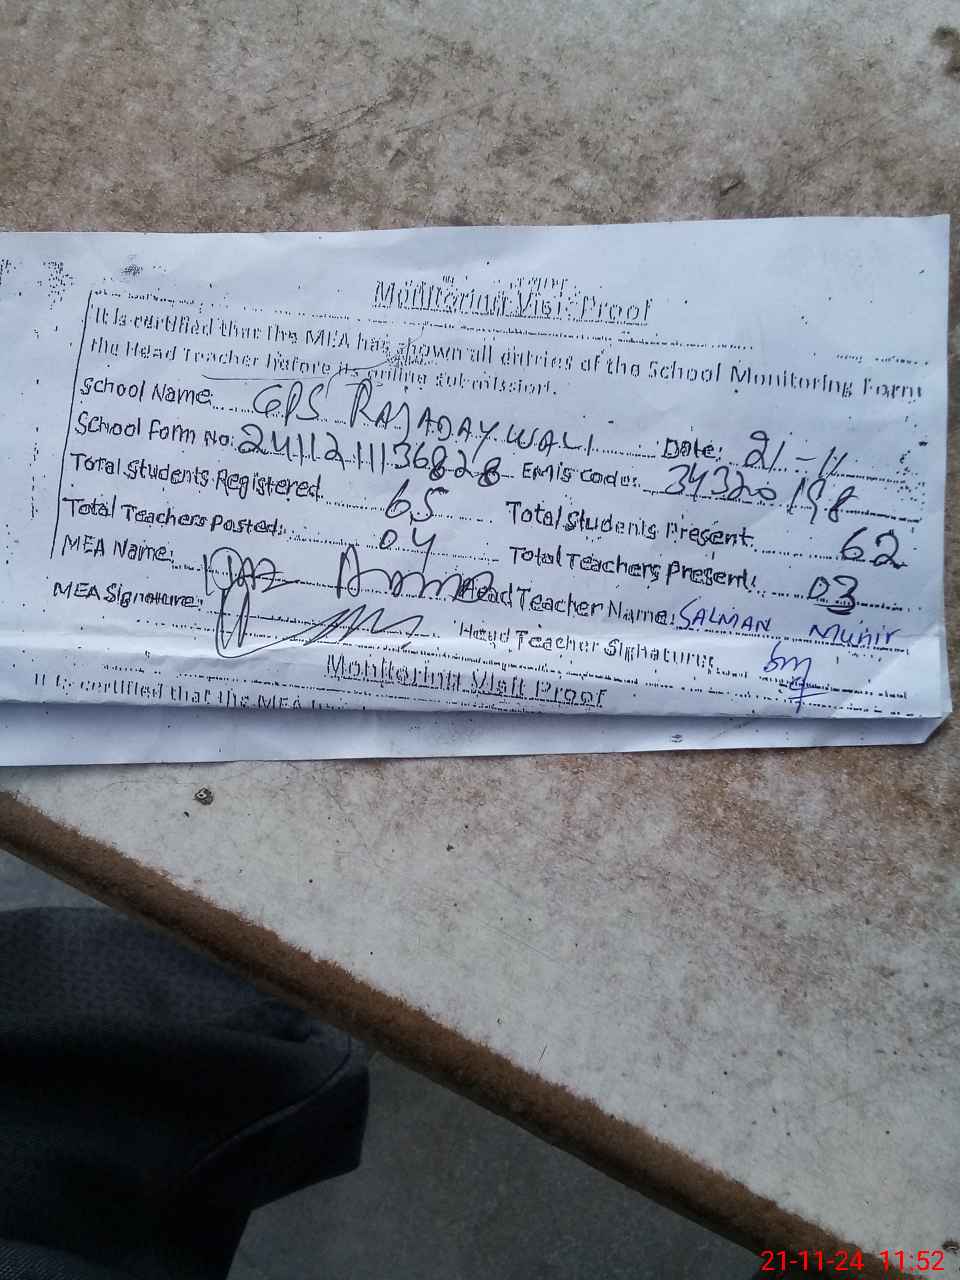 Monitoring Visit Proof
It is certified that the MEA has shown all entries of the School Monitoring Form
the Head Teacher before its online submission.
School Name: GPS RAJADAYWALI Date: 21-11
School Form No: 2411211136828 EMIS Code: 34320198
Total Students Registered 65 Total Students Present 62
Total Teachers Posted: 04 Total Teachers Present: 03
MEA Name: Head Teacher Name: SALMAN Munir
MEA Signature: Head Teacher Signature:
Monitoring Visit Proof
It is certified that the MEA
21-11-24 11:52